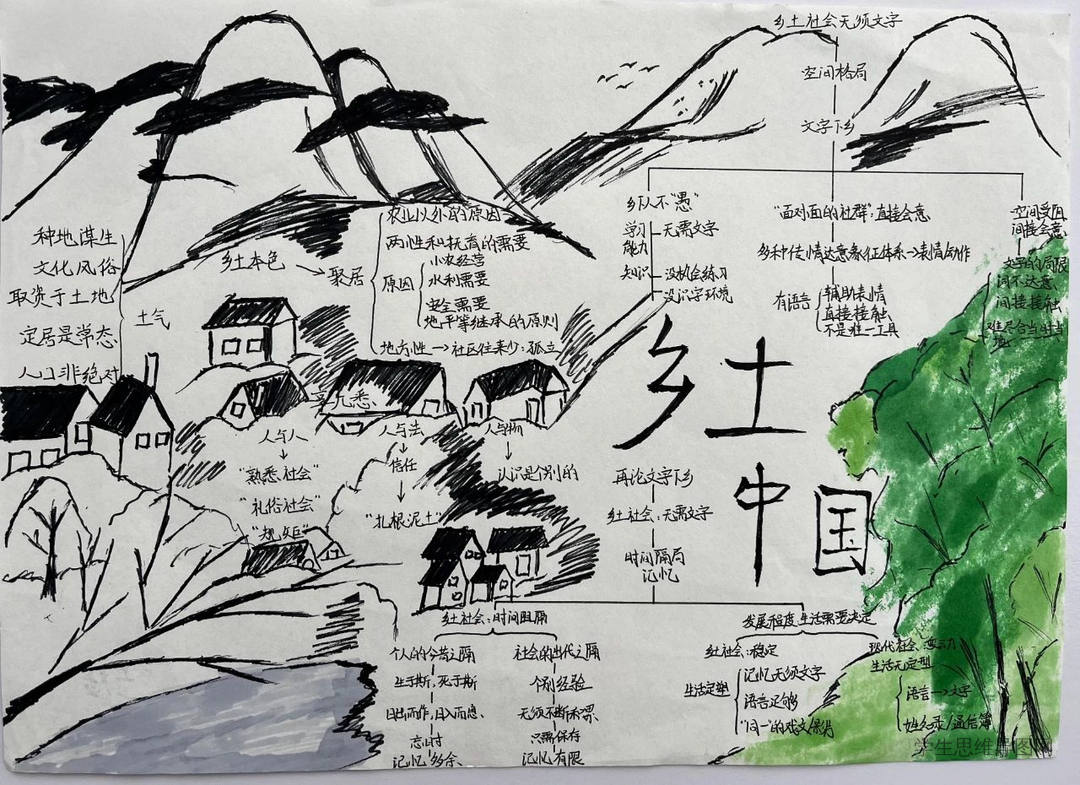 乡土社会无须文字
空间格局
文字下乡
乡下人不"愚"
学习能力
无需文字
知识
没机会练习
没识字环境
"面对面的社群":直接会意
乡村中传情达意象征体系→表情动作
有语言
辅助表情
直接接触
不是唯一工具
空间受阻
间接会意
文字的局限
词不达意
间接接触
种地谋生
文化风俗
取资于土地
定居是常态
人口非绝对
土气
乡土本色
聚居
原因
农业以外的原因
两性和抚育的需要
小农经营
水利需要
安全需要
土地平等继承的原则
地方性→社区往来少:孤立
人与人
"熟悉社会"
"礼俗社会"
"规矩"
人与法
信任
"扎根泥土"
人与物
认识是个别的
乡土
中国
再论文字下乡
乡土社会:无需文字
时间隔局
记忆
乡土社会:时间阻隔
个人的今昔之隔
生于斯,死于斯
日出而作,日入而息
忘时
记忆多余
社会的世代之隔
个别经验
无须不断积累
只需保存
记忆有限
发展程度,生活需要决定
乡土社会:稳定
生活定型
记忆无须文字
语言足够
"同一"的戏文景片
现代社会:变动
生活无定型
语言→文字
姓名录/通信簿
学生思维导图网